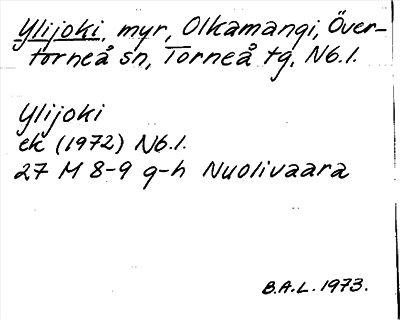 Ylijoki, myr, Olkamangi, Över-
torneå sn, Torneå tg, Nb.l.
Ylijoki
ek (1972) Nb.l.
27 M 8-9 g-h Nuolivaara
B.A.L. 1973.